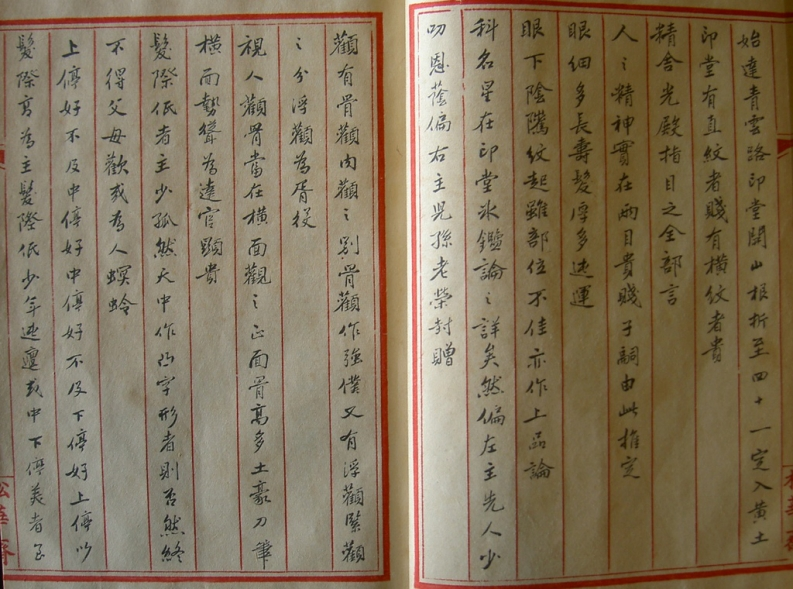 始達青雲路印堂闊山根折至四十一定入黃土
印堂有直紋者賤有橫紋者貴
精舍光殿指目之全部言
人之精神實在兩目貴賤子嗣由此推定
眼細多長壽髮厚多迍運
眼下陰隲紋起雖部位不佳亦作上品論
科名星在印堂冰鑑論之詳矣然偏左主先人少
叨恩蔭偏右主児孫老榮封贈
顴有骨顴肉顴之别骨顴作強僕又有浮顴緊顴
之分浮顴為胥役
視人顴骨當在橫面觀之正面骨高多土豪刀筆
橫面勢聳為達官顯貴
髮際低者主少孤然天中作凸字形者則否然終
不得父母歡或為人螟蛉
上停好不及中停好中停好不及下停好上停以
髮際高為主髮際低少年迍邅或中下停美者
松華齋